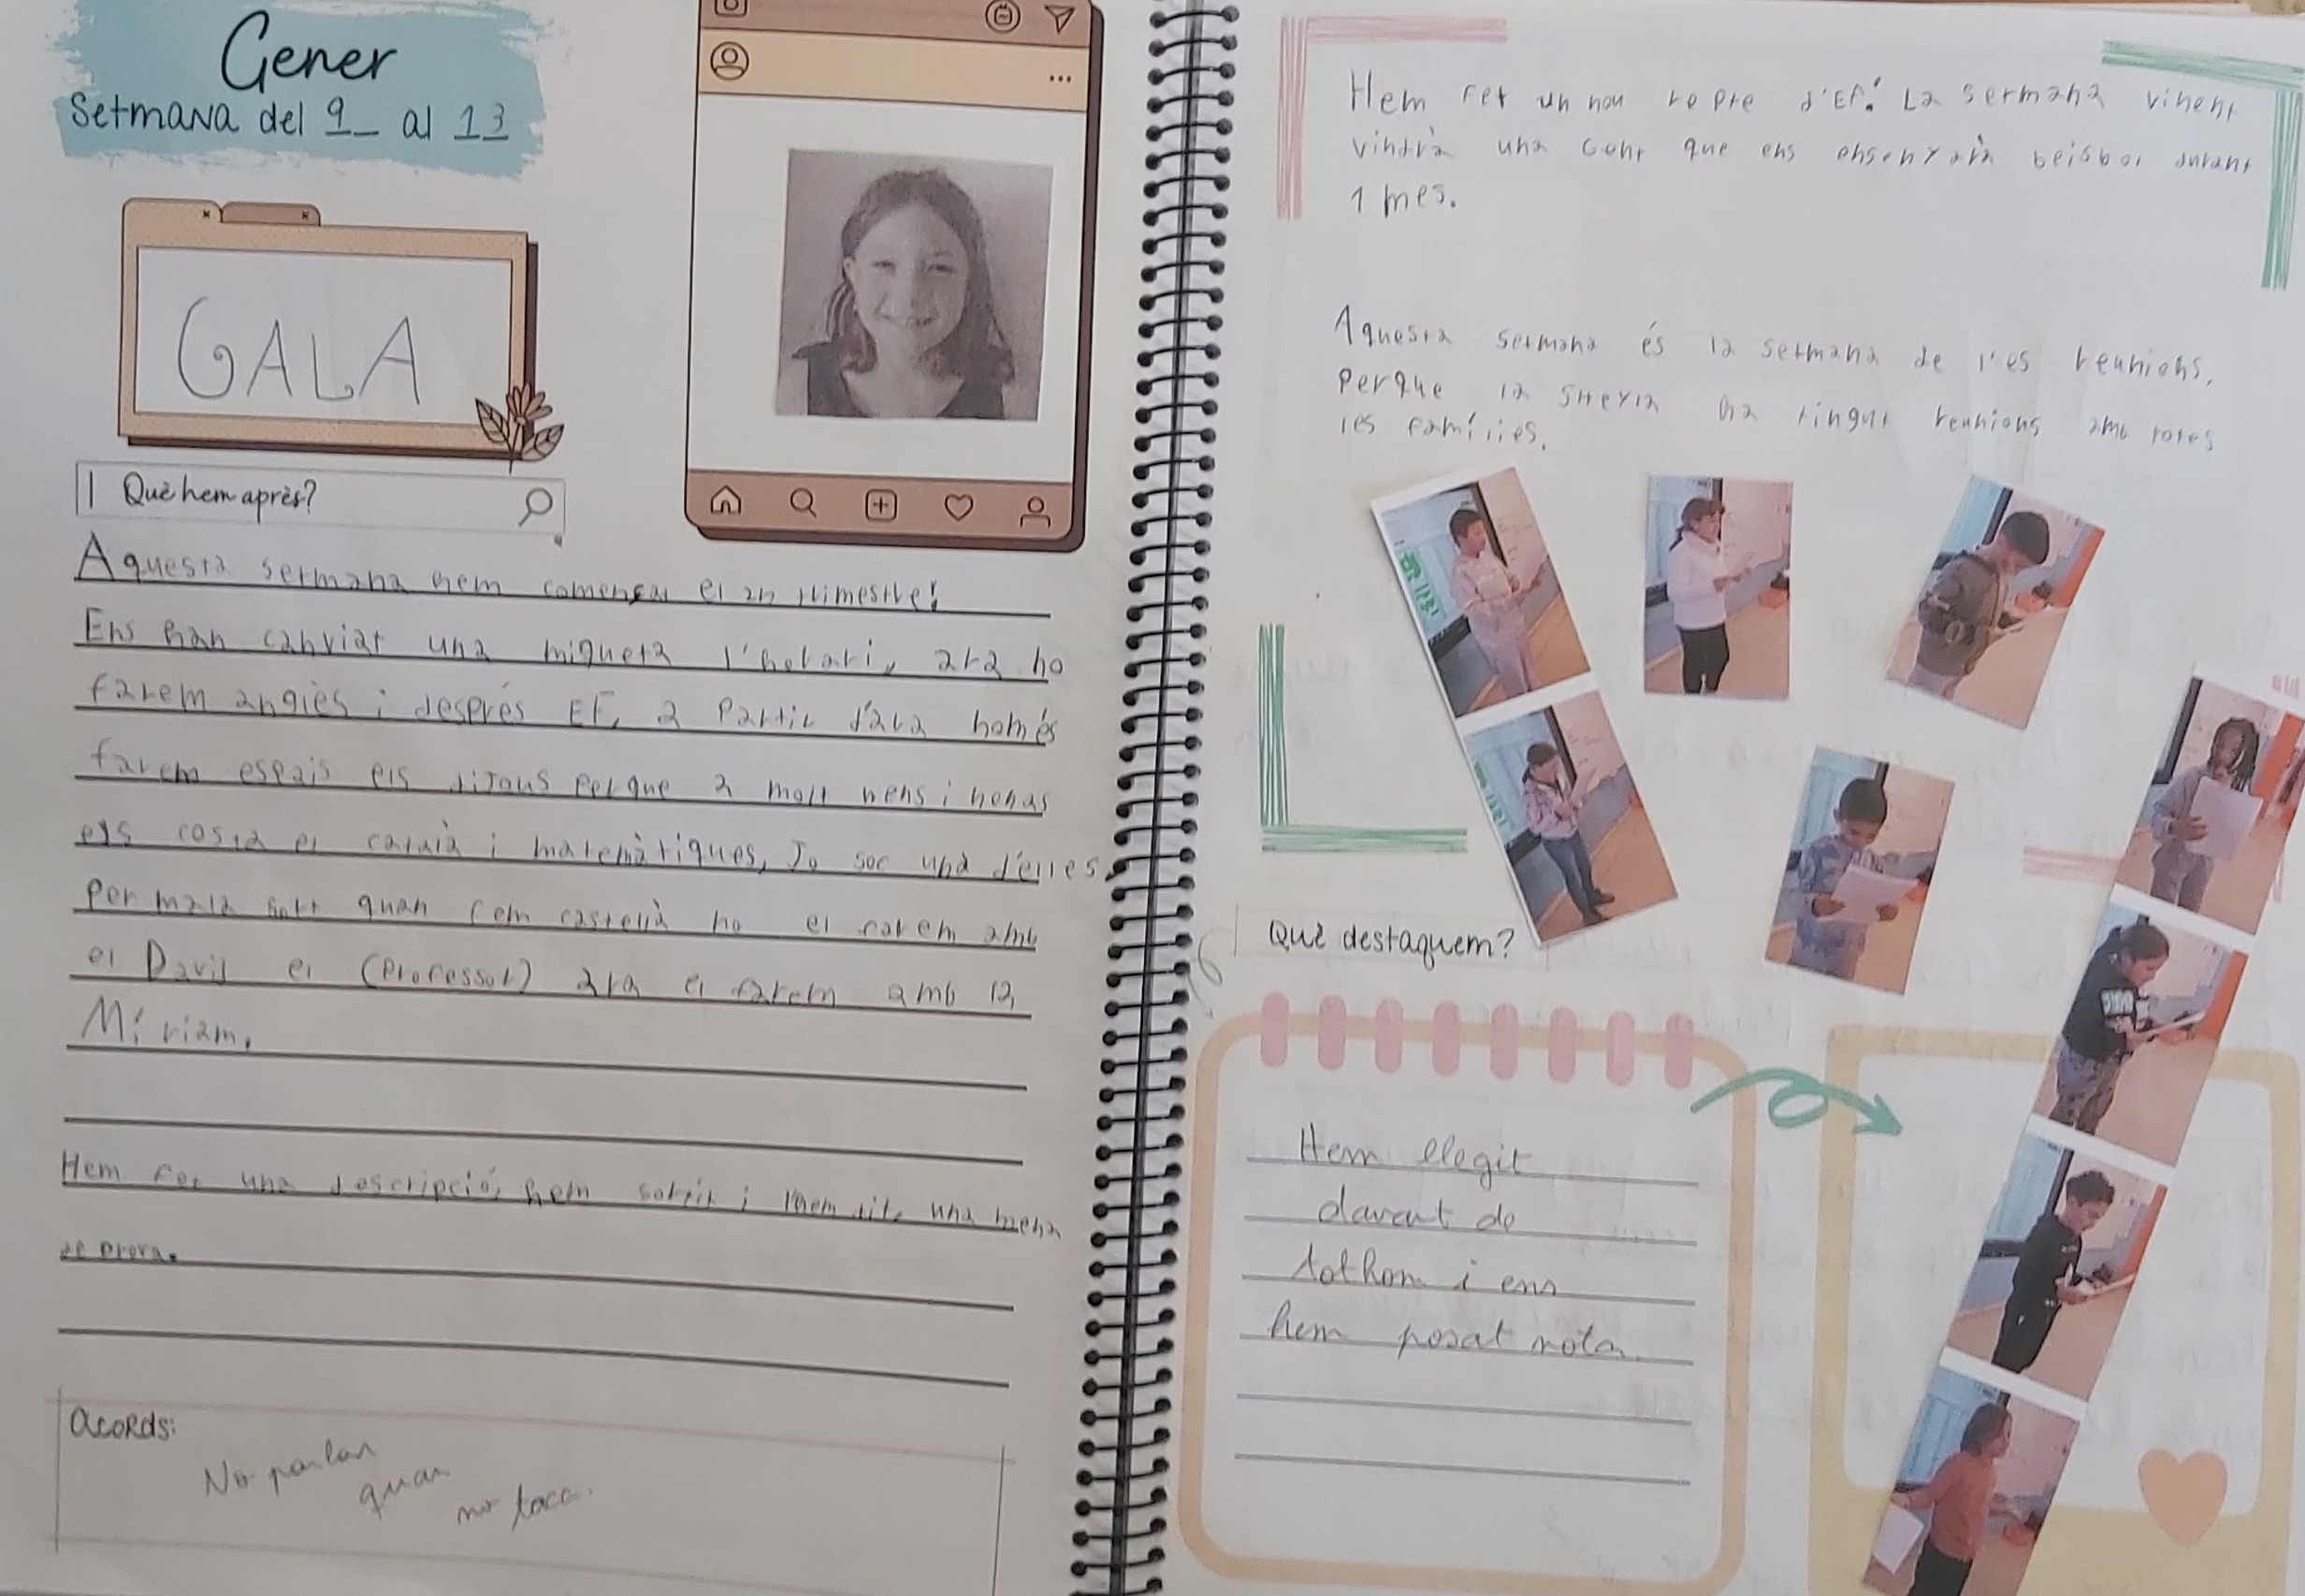 Gener
Setmana del 9 al 13
GALA
Què hem après?
Aquesta setmana hem començat el 2n trimestre!
Ens han canviat una miqueta l'horari, ara no
farem anglès i després EF, a partir d'ara només
farem espais els dijous perque a molt nens i nenas
els costa el català i matemàtiques, Jo soc una d'elles,
per mala sort quan fem castellà no el farem amb
el David el (Professor) ara el farem amb la
Míriam.
Hem fet una descripció, hem sortit i l'hem dit. una mena
de prova.
Acords:
No parlar
quan
no toca.
Hem fet un nou repte d'EF! La setmana vinent
vindrà una gent que ens ensenyarà beisbol durant
1 mes.
Aquesta setmana és la setmana de l'es reunions,
perque la Sheyla ha tingut reunions amb totes
les famílies.
Què destaquem?
Hem elegit
davant de
tothom i ens
hem posat nota.